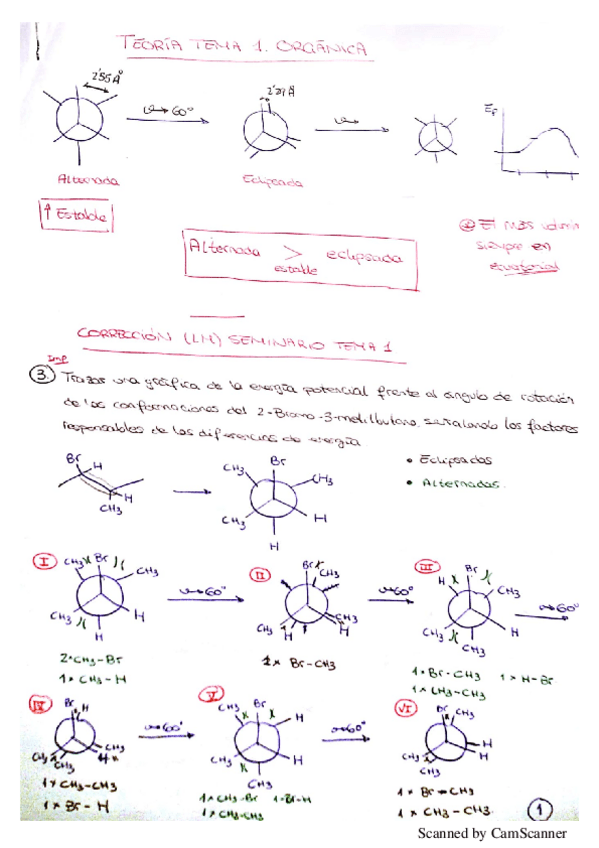 TEORÍA TEMA 1. ORGÁNICA
2'55 Å
60°
2'29 Å
Ep
Alternada
Eclipsada
↑ Estable
Alternada > eclipsada
estable
El más
siempre en
ecuatorial
CORRECCIÓN (LH) SEMINARIO TEMA 1
Imp
3. Trazar una gráfica de la energía potencial frente al ángulo de rotación
de las conformaciones del 2-Bromo-3-metilbutano, señalando los factores
responsables de las diferencias de energía
Br H
H
CH3
Br
CH3 CH3
CH3 H
H
• Eclipsadas
• Alternadas.
I
CH3 Br
CH3
CH3 H
H
60°
2×CH3-Br
1×CH3-H
II
Br
CH3
CH3
H H
60°
2× Br-CH3
III
H Br
CH3
CH3 H
CH3
60°
1×Br-CH3 1×H-Br
1×CH3-CH3
IV
Br H
CH3
CH3 H
CH3
60°
1×CH3-CH3
1×Br-H
V
Br
CH3 H
CH3 H
CH3
60°
1×CH3-Br 1×Br-H
1×CH3-CH3
VI
Br CH3
H
CH3 H
CH3
1×Br-CH3
1×CH3-CH3.
1
Scanned by CamScanner